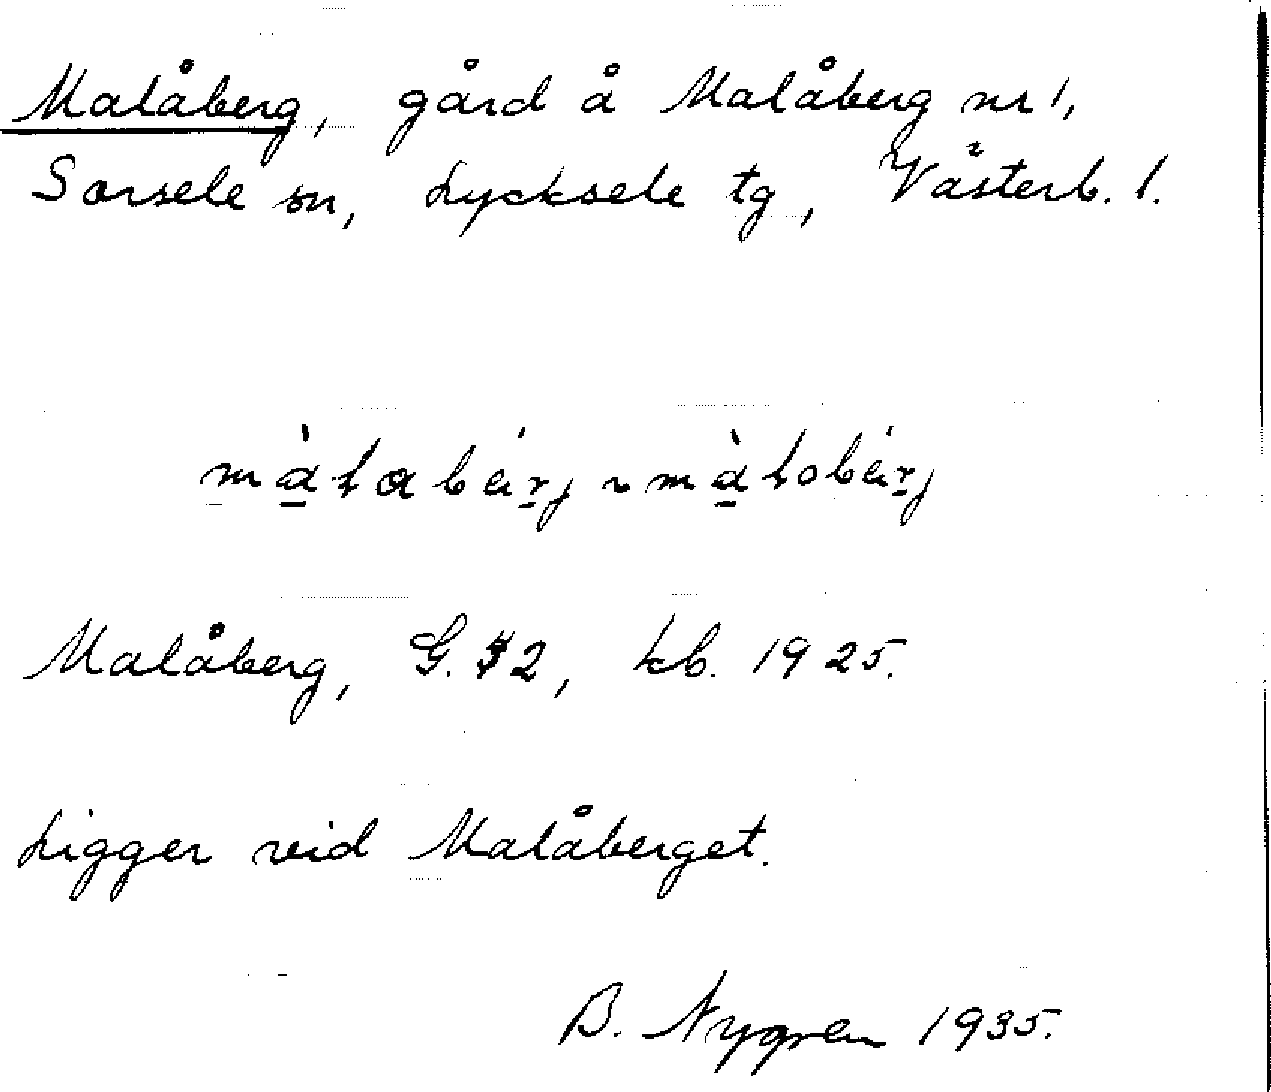 Malåberg, gård å Malåberg nr 1,
Sorsele sn, Lycksele tg, Västerb. l.
Malåberg, G. 32, kb. 1925.
Ligger vid Malåberget.
B. Nygren 1935.